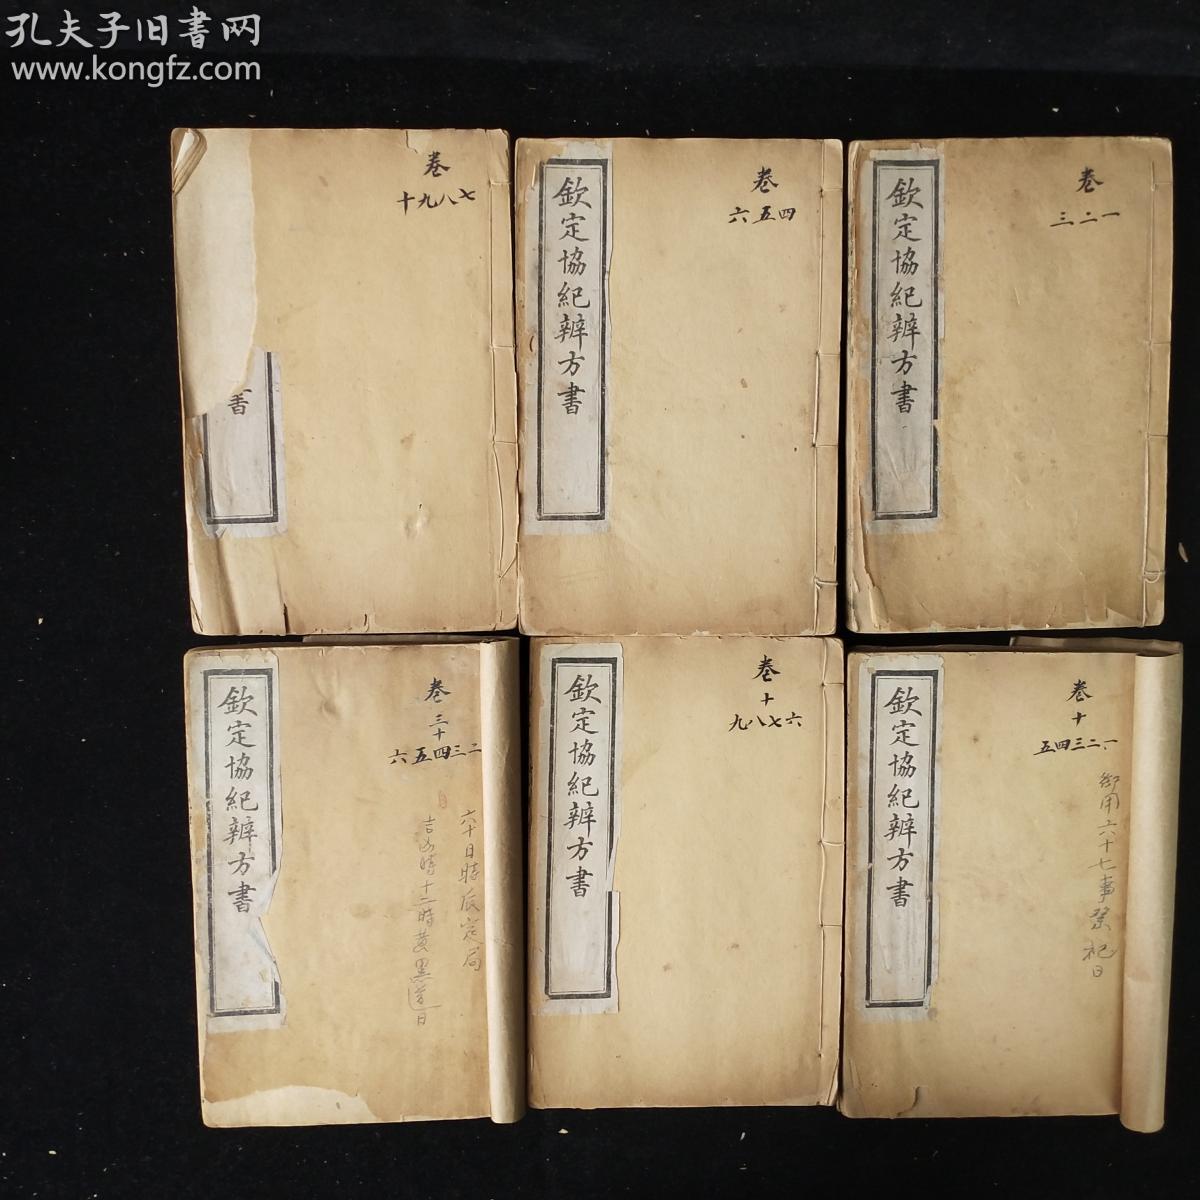 孔夫子旧書网
www.kongfz.com
卷
一二三
欽定協紀辨方書
卷
四五六
欽定協紀辨方書
卷
七八九十
書
卷十
一二三四五
御用六十七事祭祀日
欽定協紀辨方書
卷十
六七八九
欽定協紀辨方書
卷三十
二三四五六
六十日時辰定局
吉凶時十二時黃黑道日
欽定協紀辨方書